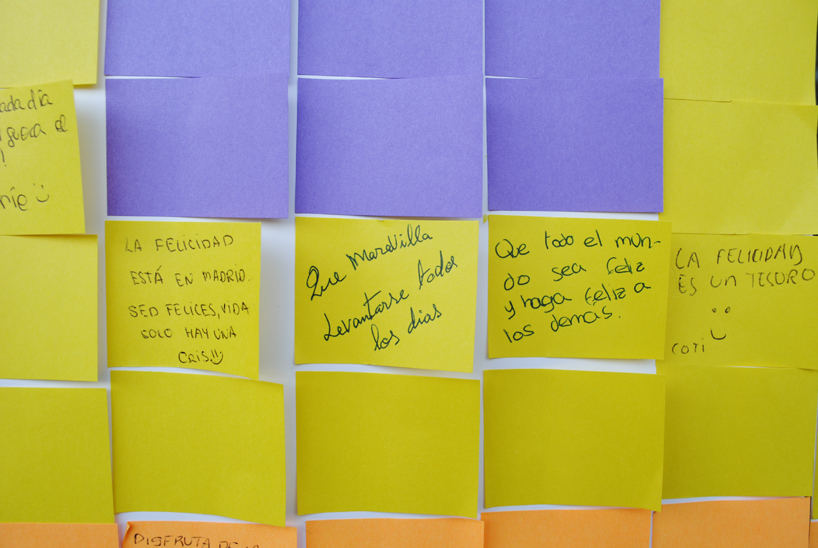 LA FELICIDAD
ESTÁ EN MADRID.
SED FELICES, VIDA
SOLO HAY UNA
CRIS!!
Que Maravilla
Levantarse todos
los dias
Que todo el mun-
do sea feliz
y haga feliz a
los demás.
LA FELICIDAD
ES UN TESORO
COTI
DISFRUTA DE